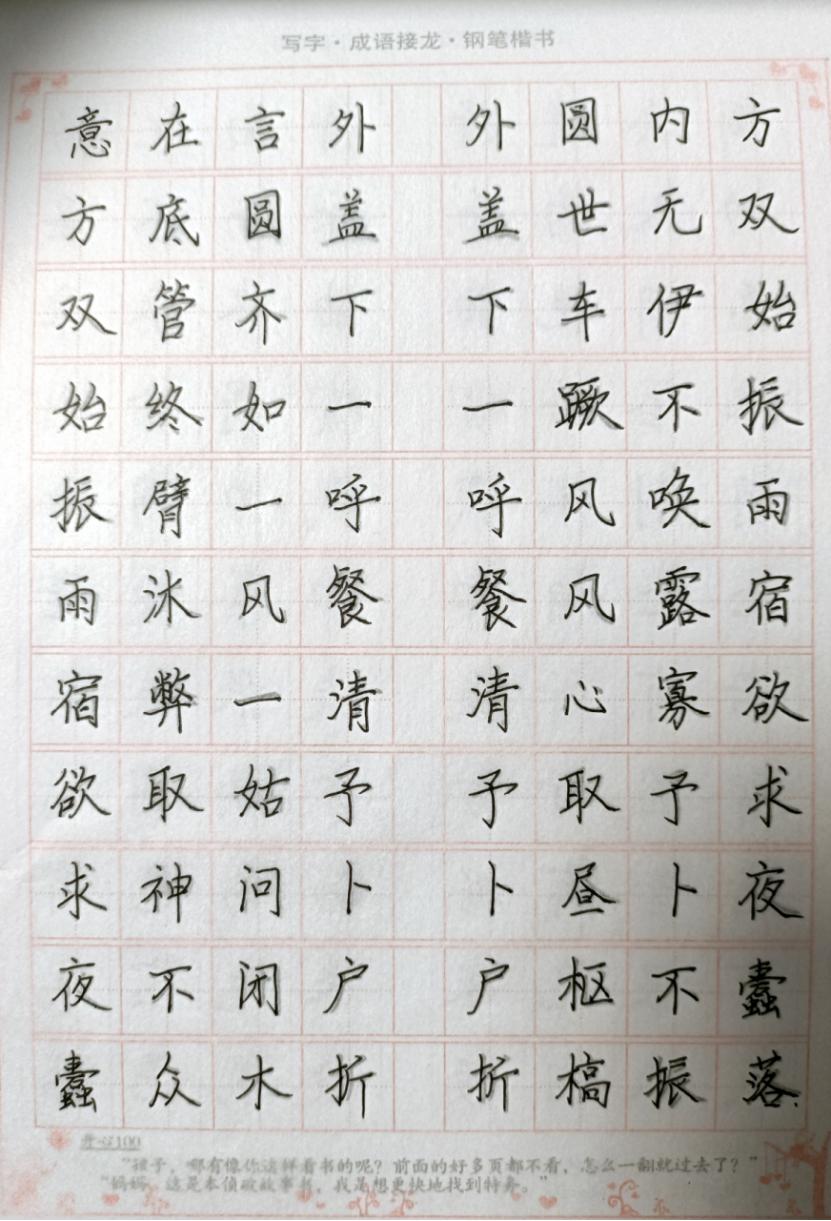 写字·成语接龙·钢笔楷书
意在言外 外圆内方
方底圆盖 盖世无双
双管齐下 下车伊始
始终如一 一蹶不振
振臂一呼 呼风唤雨
雨沐风餐 餐风露宿
宿弊一清 清心寡欲
欲取姑予 予取予求
求神问卜 卜昼卜夜
夜不闭户 户枢不蠹
蠹众木折 折槁振落
开心100
“孩子，哪有像你这样看书的呢？前面的好多页都不看，怎么一翻就过去了？”
“妈妈，这是本侦破故事书，我是想更快地找到特务。”